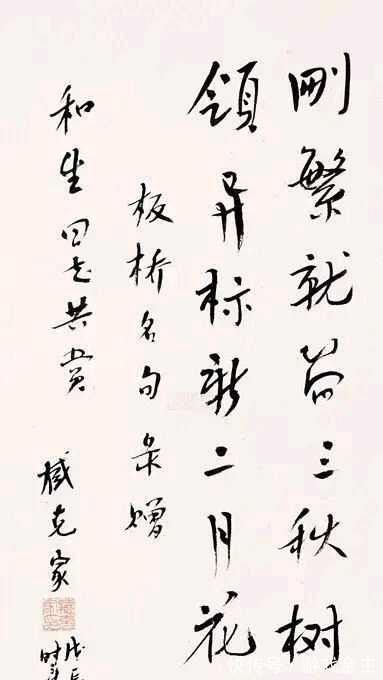 删繁就简三秋树
领异标新二月花
板桥名句录赠
和生同志共赏
臧克家
戊辰
快传号/游戏金主